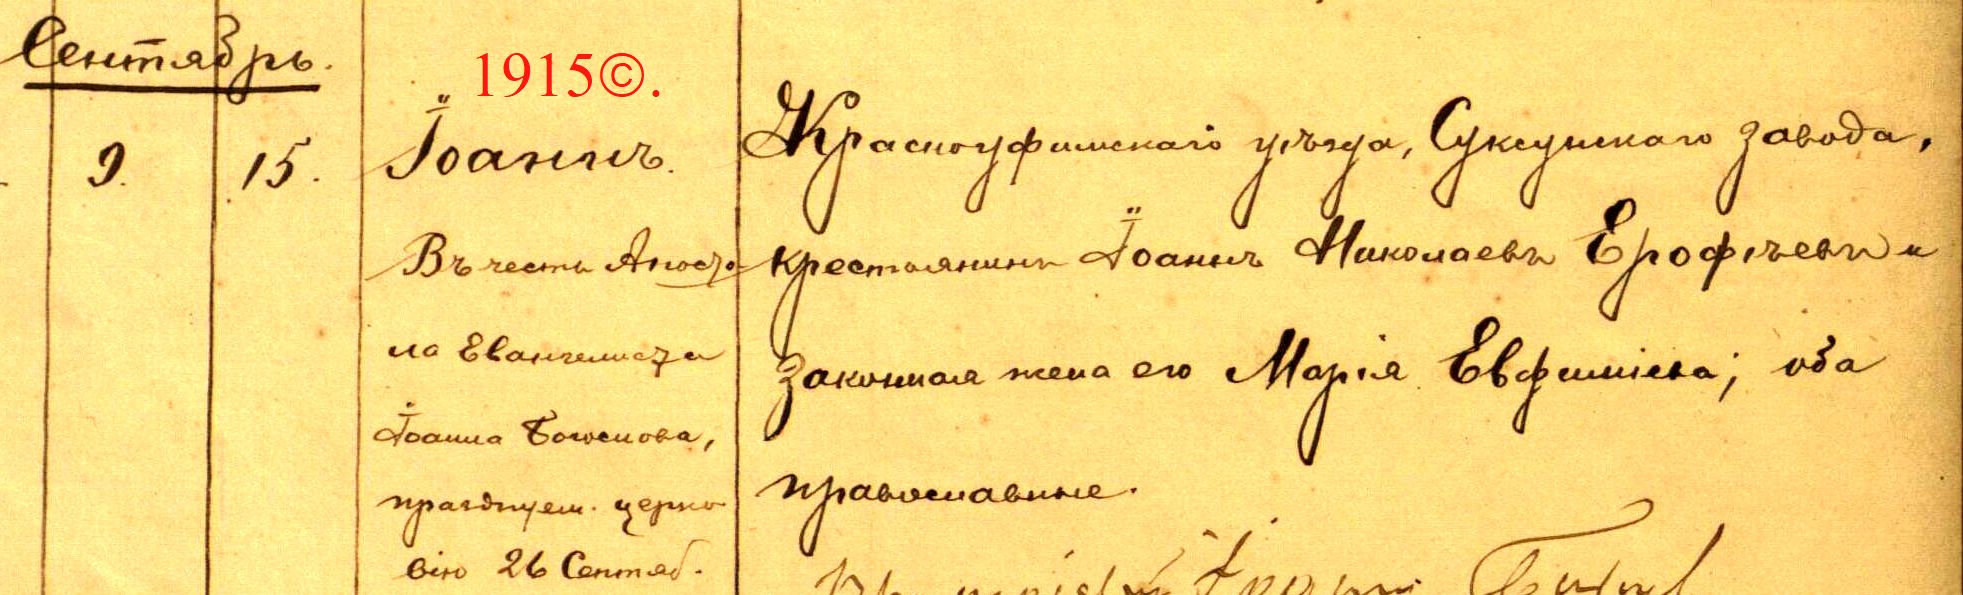 Сентябрь.
1915©.
9. 15. Іоаннъ.
Въ честь Апосто
ла Евангелиста
Іоанна Богослова,
празднуем. церко
вію 26 Сентяб.
Красноуфимскаго уѣзда, Суксунскаго завода,
крестьянинъ Іоаннъ Николаевъ Ерофѣевъ и
законная жена его Марія Евфиміева; оба
православные.